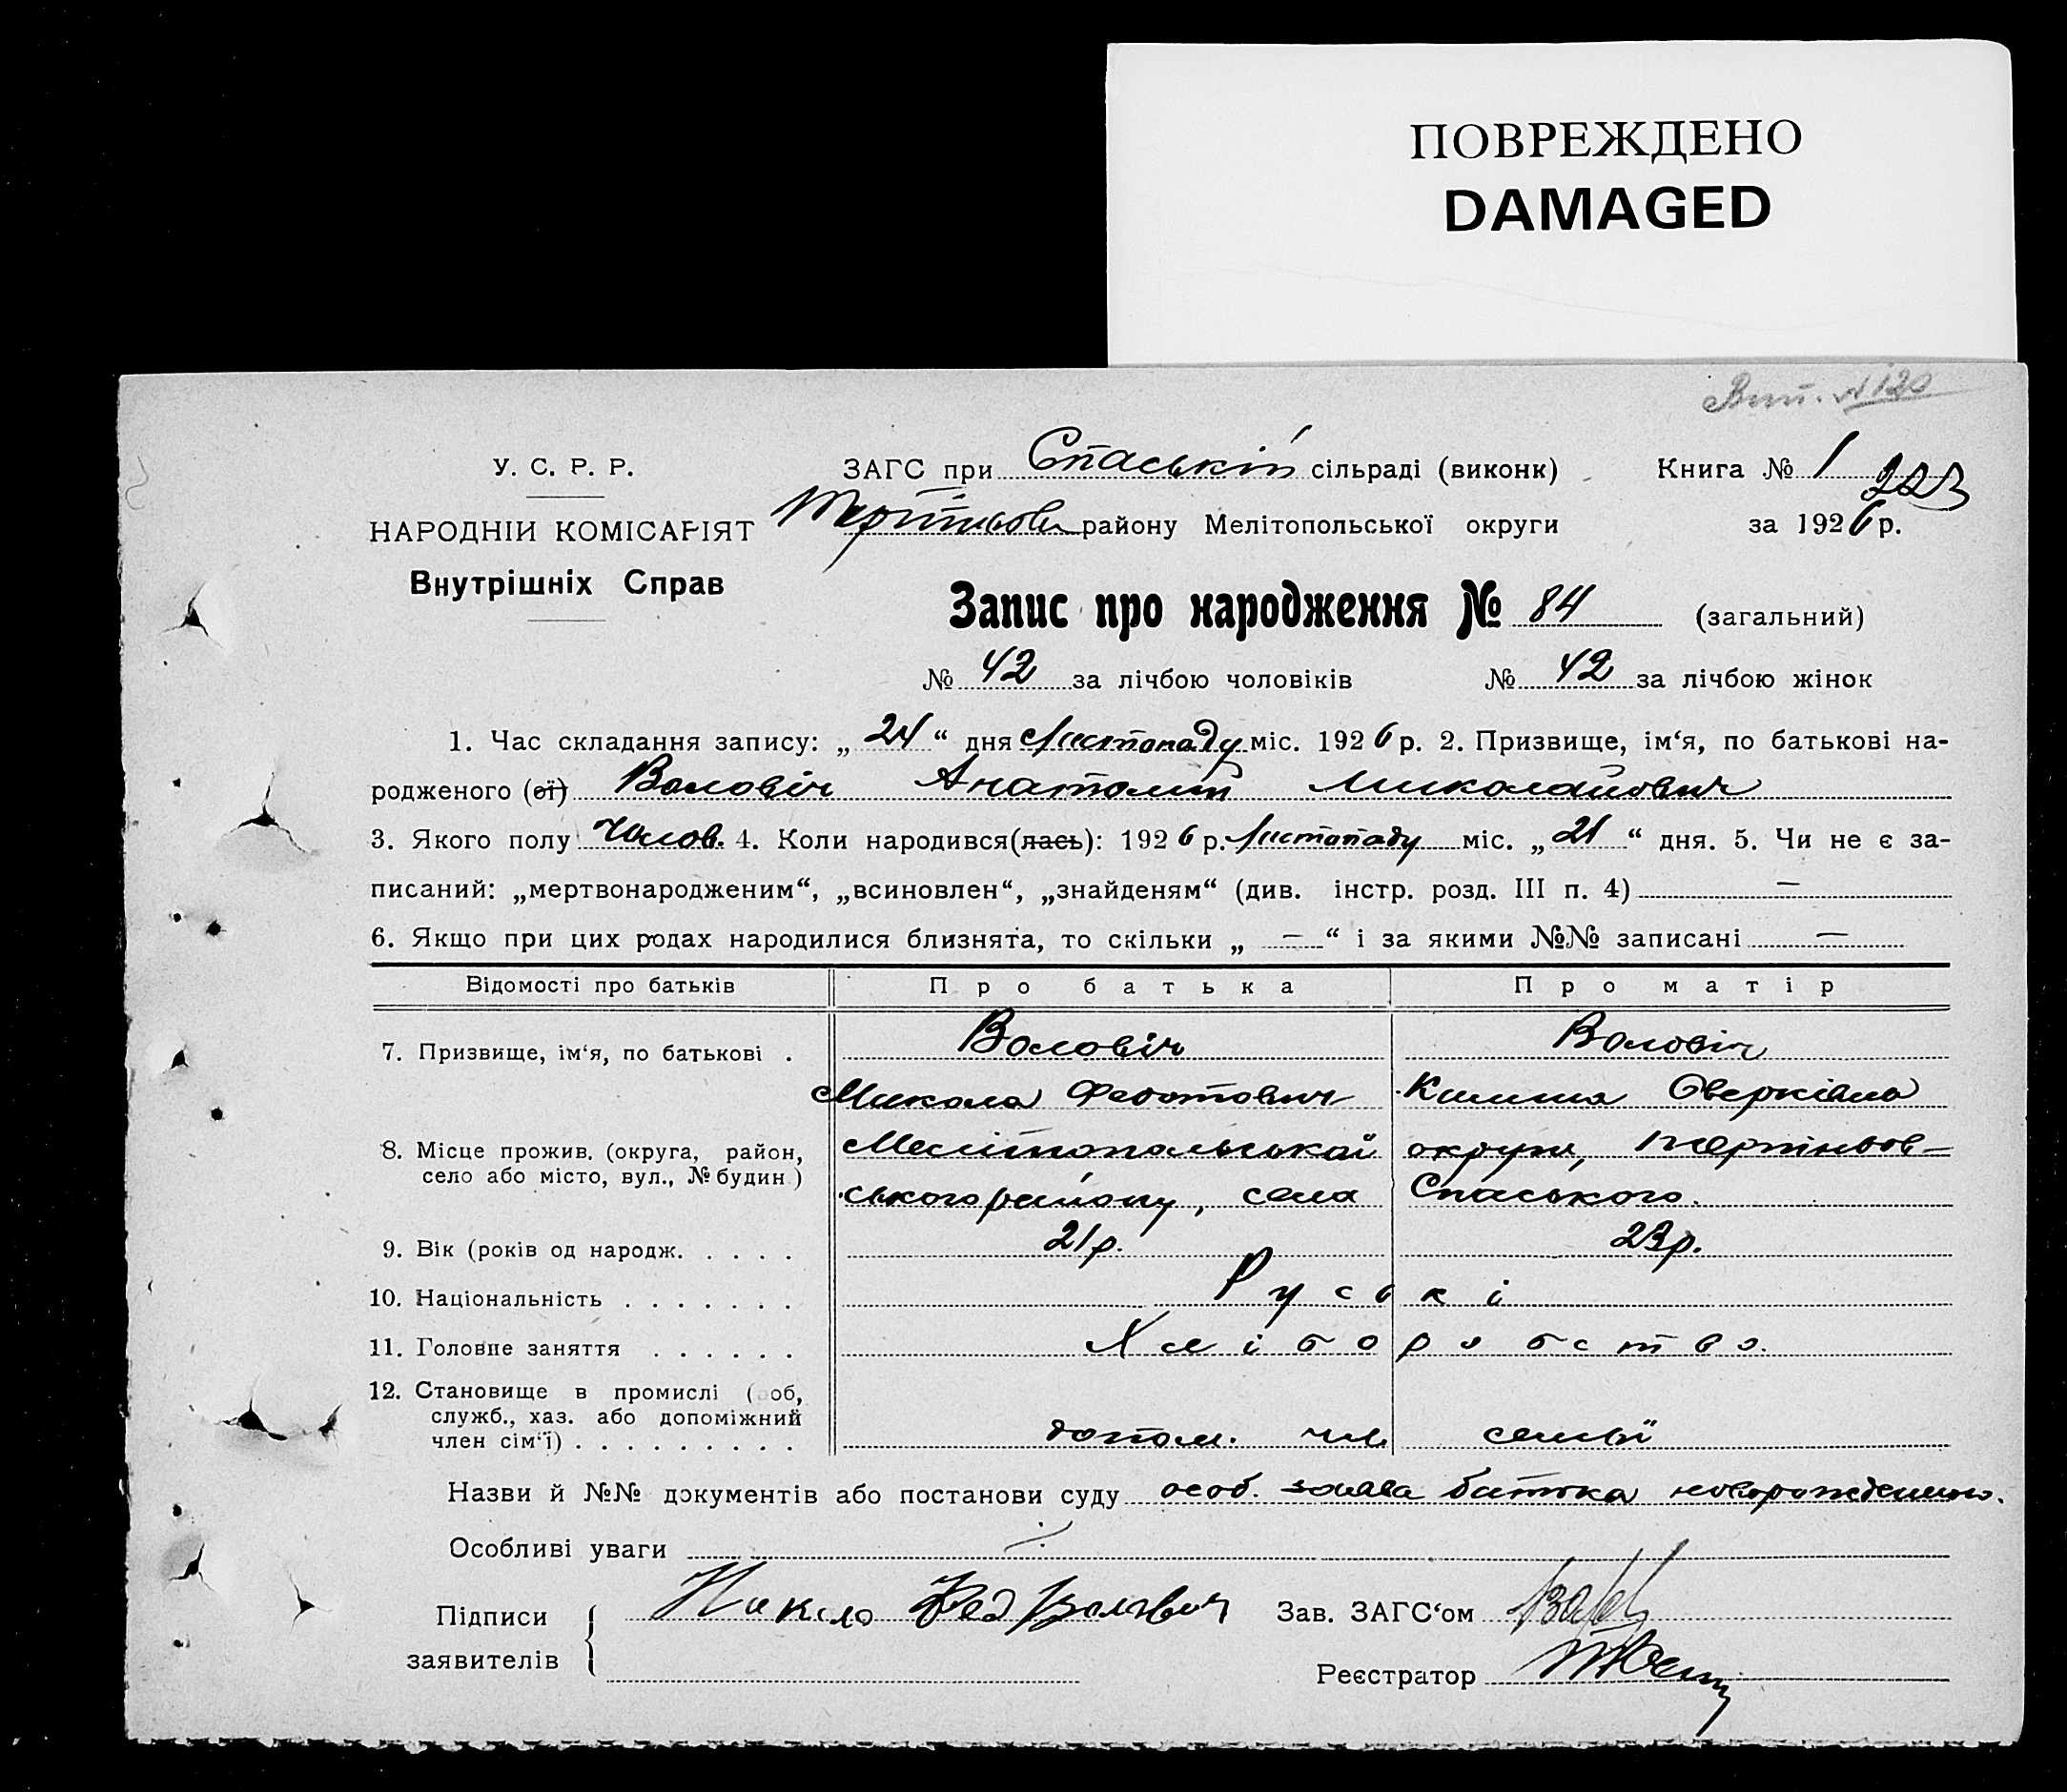 ПОВРЕЖДЕНО
DAMAGED
Вит. № 120
У. С. Р. Р.
ЗАГС при Спаській сільраді (виконк)
Книга № 1
223
НАРОДНІЙ КОМІСАРІЯТ
району Мелітопольської округи
за 1926 р.
Внутрішніх Справ
Запис про народження № 84 (загальний)
№ 42 за лічбою чоловіків № 42 за лічбою жінок
1. Час складання запису: „24“ дня Листопаду міс. 1926 р. 2. Призвище, ім‘я, по батькові на-
родженого (ої) Воловіч Анатолій Миколайович
3. Якого полу Чолов. 4. Коли народився(лась): 1926 р. Листопаду міс. „21“ дня. 5. Чи не є за-
писаний: „мертвонародженим“, „всиновлен“, „знайденям“ (див. інстр. розд. III п. 4) —
6. Якщо при цих родах народилися близнята, то скільки „—“ і за якими №№ записані —
Відомості про батьків Про батька Про матір
7. Призвище, ім‘я, по батькові . Воловіч Воловіч
Микола Федотович Оверківна
8. Місце прожив. (округа, район, Мелітопольської округи, Терпіньов-
село або місто, вул., № будин.) ського району, села Спаського.
9. Вік (років од народж. . . . . 21 р. 23 р.
10. Національність . . . . . . . Руські
11. Головне заняття . . . . . . Хліборобство.
12. Становище в промислі ( об,
служб., хаз. або допоміжний
член сім‘ї) . . . . . . . . . допом. чл. семьї
Назви й №№ документів або постанови суду особ. заява батька новорожденного.
Особливі уваги
Підписи
заявителів
Зав. ЗАГС‘ом
Реєстратор